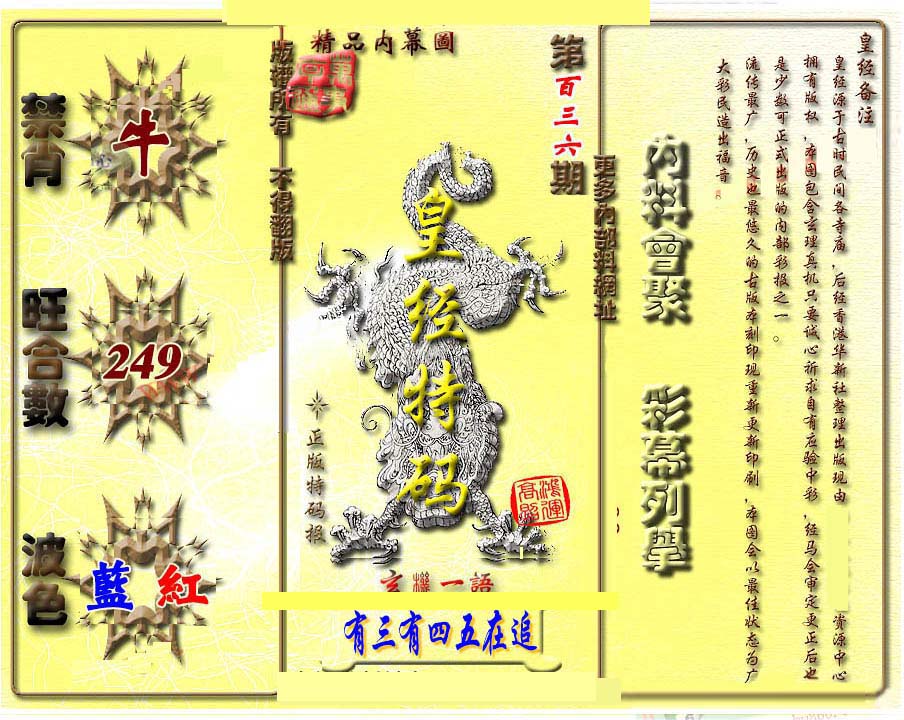 精品內幕圖
第百三六期
版權所有 不得翻版
禁肖
牛
旺合數
249
波色
藍 紅
皇经特码
正版特码报
鴻運高照
玄機一語
有三有四五在追
更多內部料網址
內料會聚 彩幕列舉
皇经备注
皇经源于古时民间各寺庙,后经香港华新社整理出版现由
资源中心
拥有版权,本图包含玄理真机只要诚心祈求自有应验中彩,经马会审定更正后也
是少数可正式出版的内部彩报之一。
流传最广,历史也最悠久的古版本刻印现重新更新印刷,本图会以最佳状态为广
大彩民造出福音